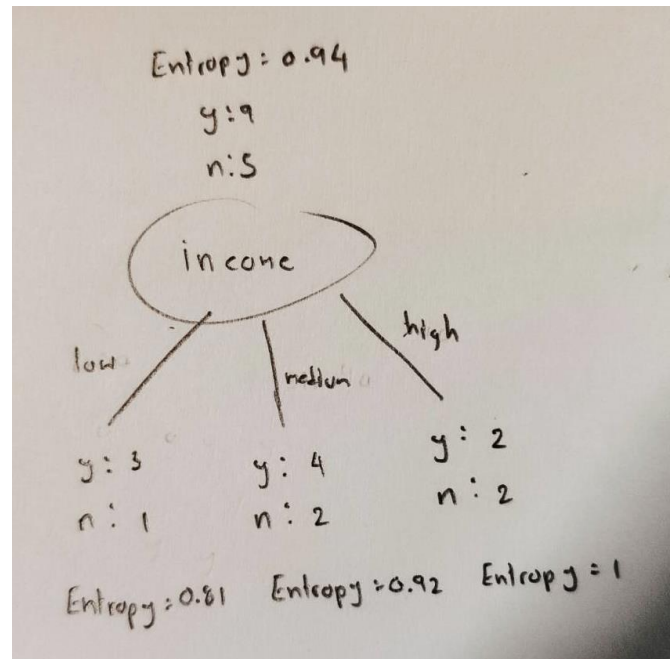 Entropy: 0.94
y: 9
n: 5
income
low
medium
high
y: 3
n: 1
y: 4
n: 2
y: 2
n: 2
Entropy: 0.81
Entropy: 0.92
Entropy = 1